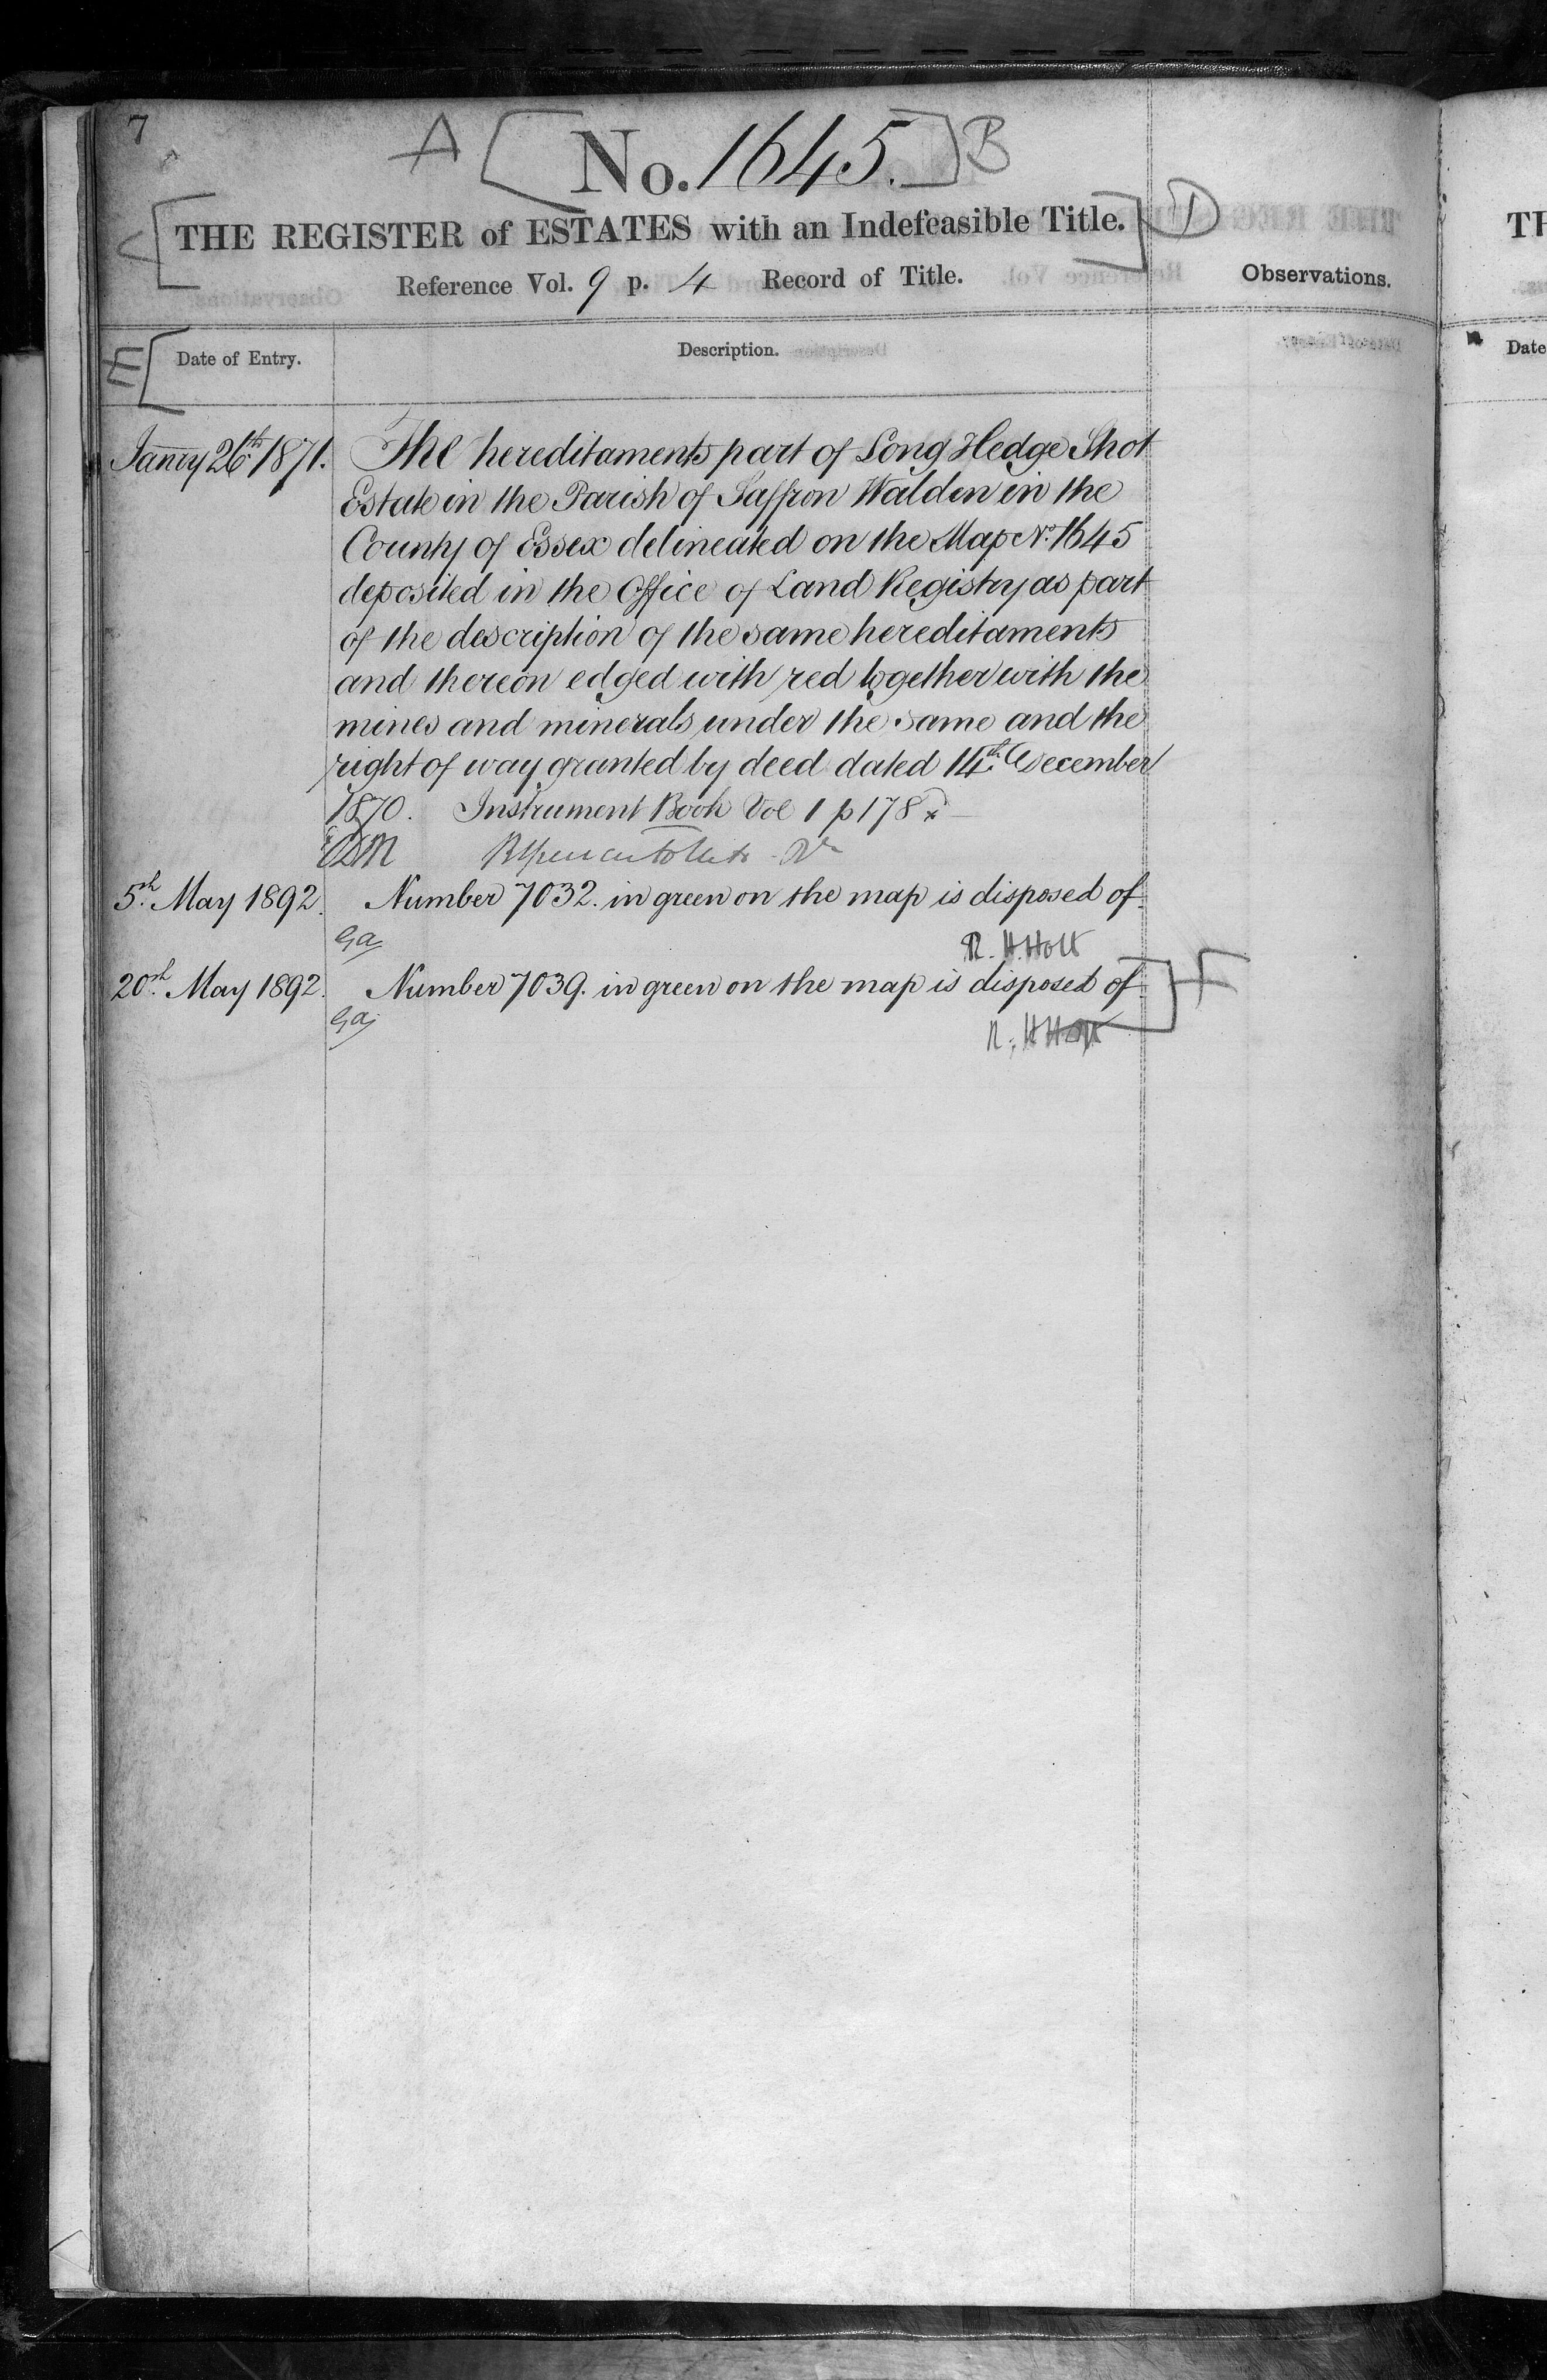 7
A [ No. 1645. ] B
C [ THE REGISTER of ESTATES with an Indefeasible Title. ] D
Reference Vol. 9 p. 4 Record of Title.
Observations.
E [ Date of Entry.
Description.
Janry 26th 1871. The hereditaments part of Long Hedge Shot
Estate in the Parish of Saffron Walden in the
County of Essex delineated on the Map No. 1645
deposited in the Office of Land Registry as part
of the description of the same hereditaments
and thereon edged with red together with the
mines and minerals under the same and the
right of way granted by deed dated 14th December
1870. Instrument Book Vol 1 p 178 x
5th May 1892. Number 7032. in green on the map is disposed of.
R. H. Holt
20th May 1892. Number 7039. in green on the map is disposed of. ] F
R. H. Holt
TH
Date